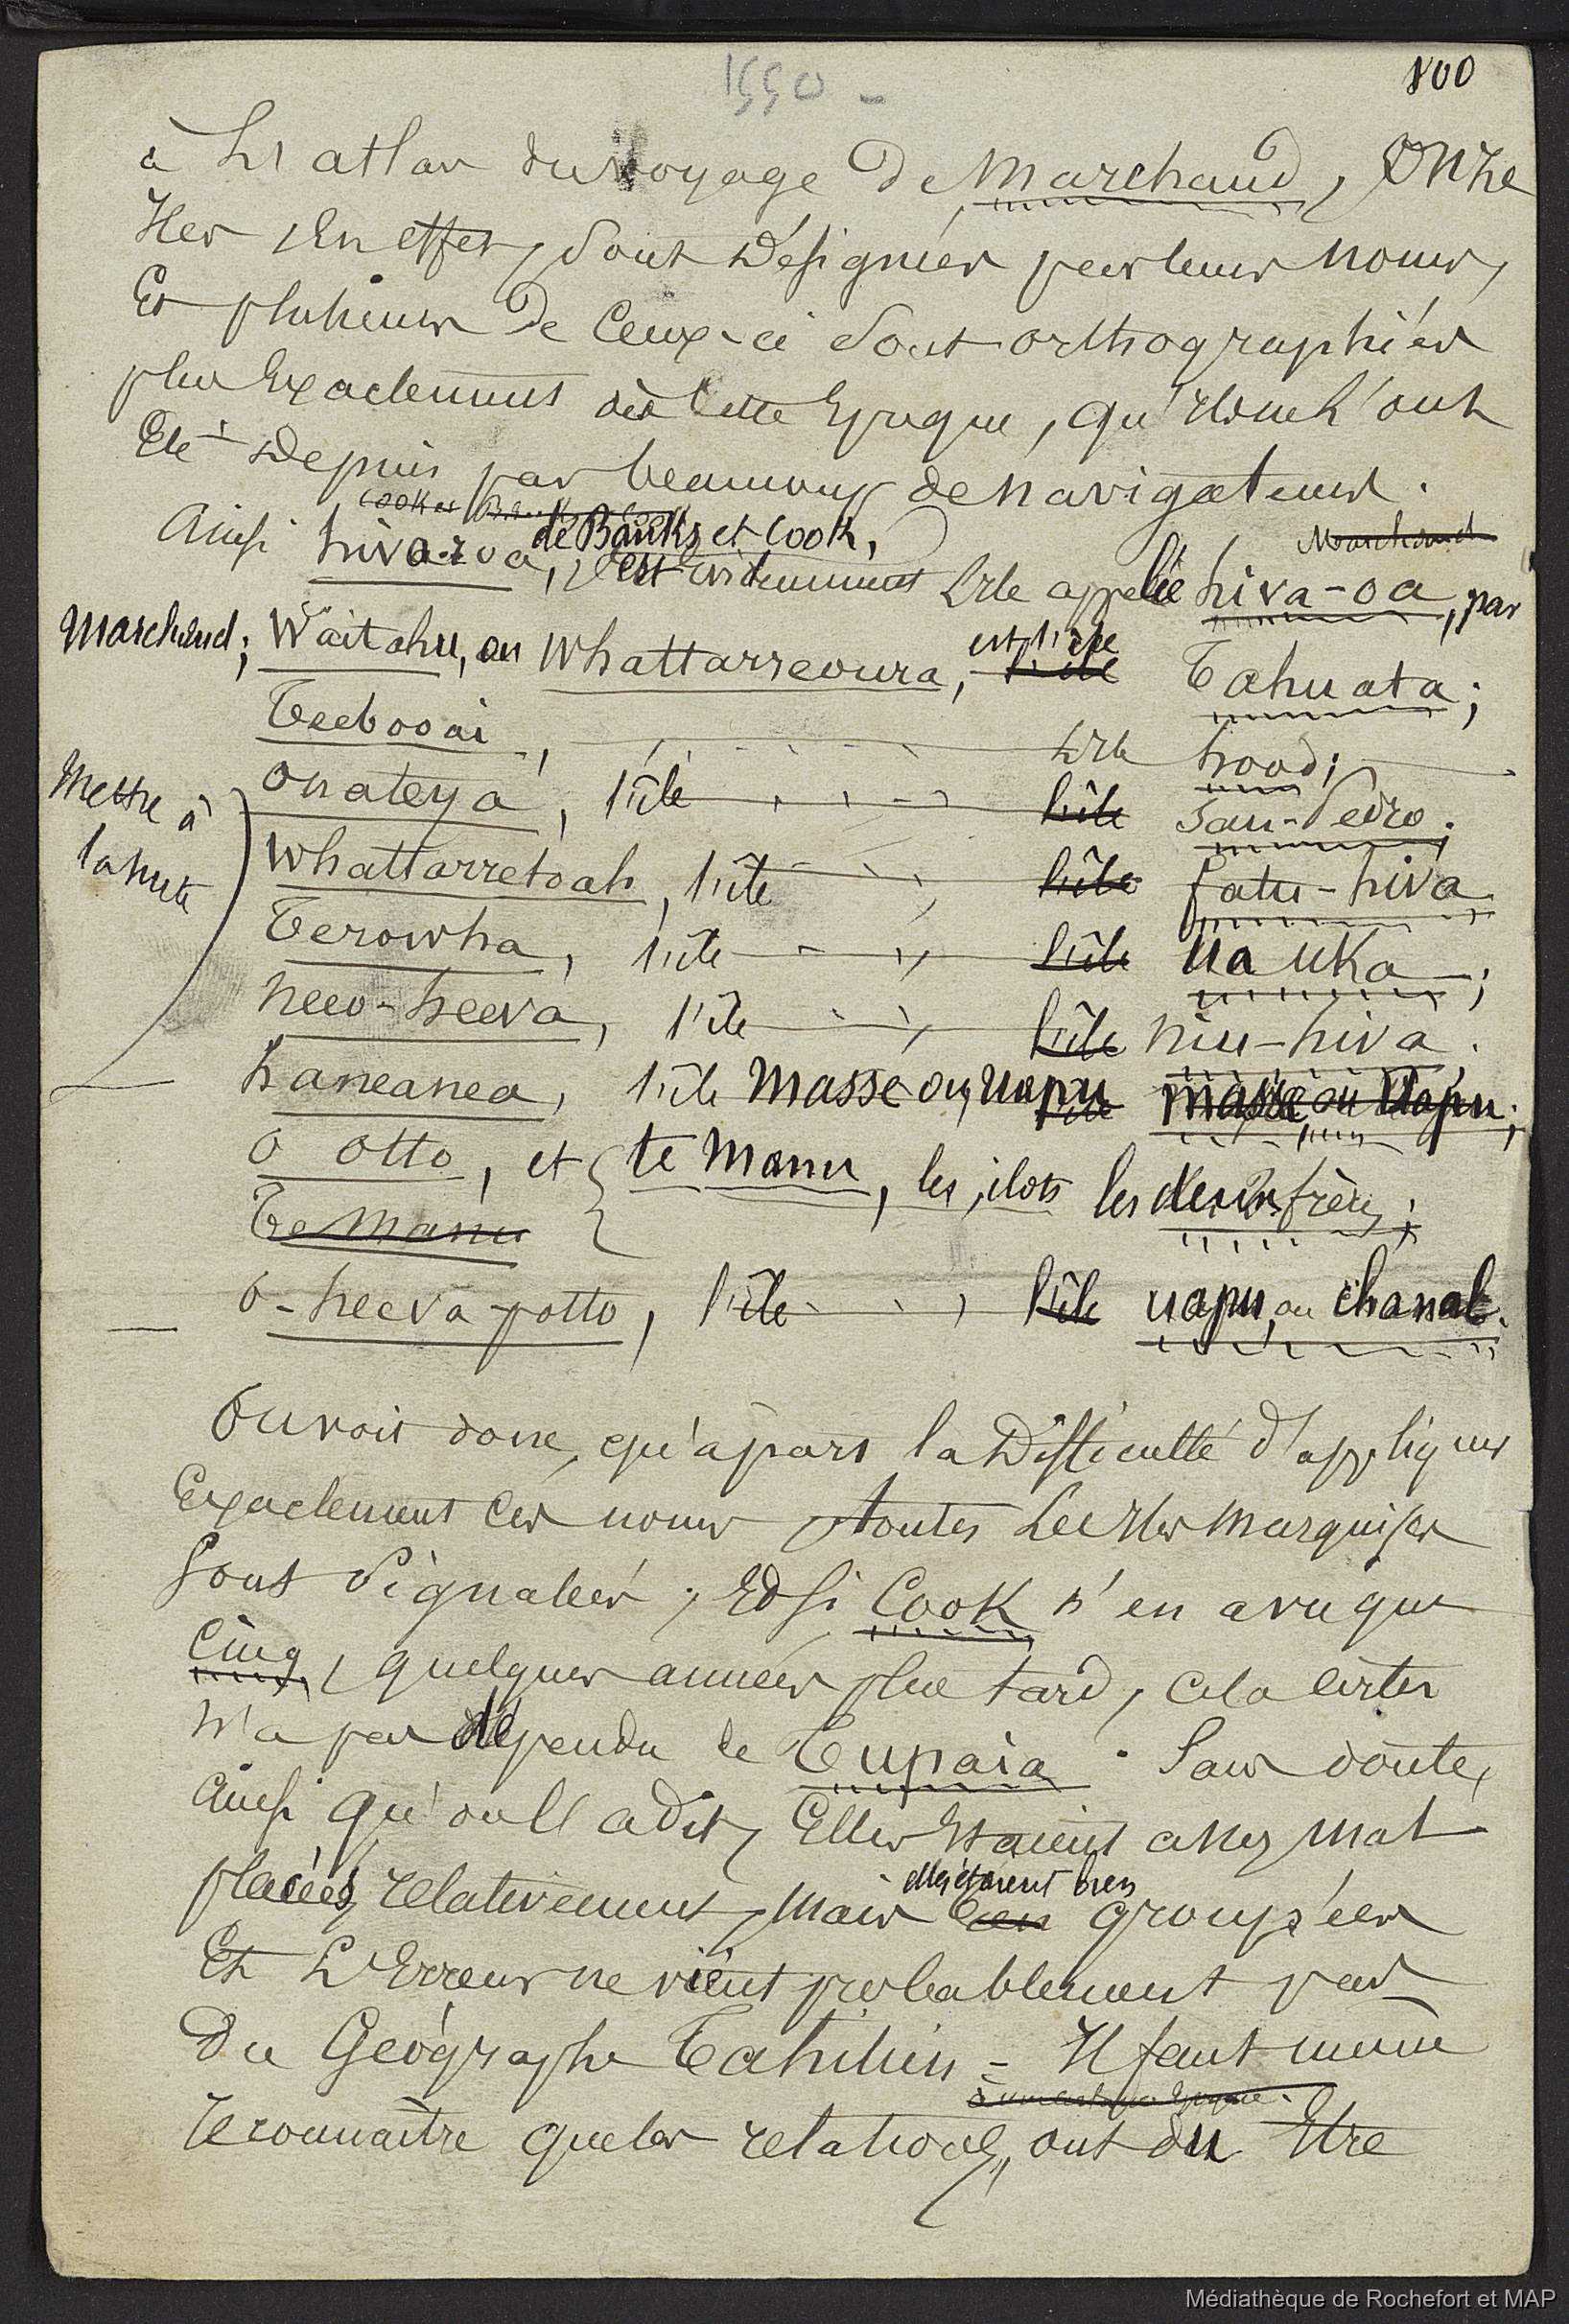 1550 -
800
à L'atlas du voyage De Marchaud, Onze
Iles, En effet, sont Désignées par leurs noms,
Et plusieurs De Ceux-ci sont orthographiés
plus Exactement dès Cette Epoque, qu'ils ne l'ont
Eté Depuis par beaucoup de navigateurs.
Cook et
de Banks et Cook,
Marchand
Ainsi hiva-roa, est Evidemment L'Ile appelée hiva-oa, par
Marchand; Waitahu, ou Whattarreoura, est l'île l'île Tahuata;
Teebooai, L'Ile hood;
Mettre à la suite
Onateya, l'île l'île San-Pedro;
Whattarretoah, l'île l'île fatu-hiva
Terowha, l'île l'île ua uka;
neeo-heeva, l'île l'île niu-hiva.
haneanea, l'île Masse ou uapu l'île Masse ou Uapu;
O otto, et te Manu, les ilots les deux frères;
Te Manu
O-heeva-potto, l'île l'île uapu, ou chanal.
On voit donc, qu'à part la Difficulté d'appliquer
Exactement Ces noms, toutes Les Iles Marquises
Sont Signalées; Et si Cook n'en a vu que
Cinq, quelques années plus tard, Cela Certes
N'a pas dépendu de Tupaia. Sans doute,
Ainsi qu'on l'a dit, Elles Etaient assez mal
placées, relativement, Mais elles étaient bien groupées
Et L'Erreur ne vient probablement pas
Du Géographe Tahitien - Il faut même
reconnaître quelles relations, ont du Etre
Médiathèque de Rochefort et MAP